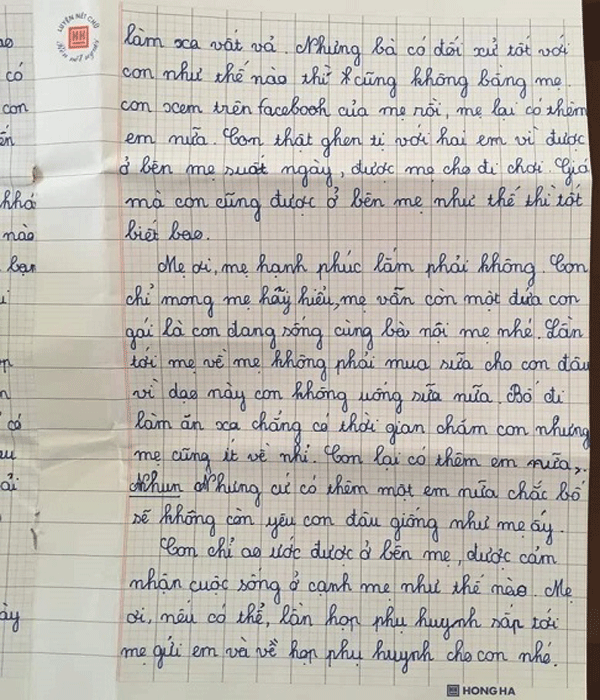 LUYỆN NÉT CHỮ
làm xa vất vả. Nhưng bà có đối xử tốt với
con như thế nào thì cũng không bằng mẹ.
con xem trên facebook của mẹ rồi, mẹ lại có thêm
em nữa. Con thật ghen tị với hai em vì được
ở bên mẹ suất ngày, được mẹ cho đi chơi. Giá
mà con cũng được ở bên mẹ như thế thì tốt
biết bao.
Mẹ ơi, mẹ hạnh phúc lắm phải không. Con
chỉ mong mẹ hãy hiểu, mẹ vẫn còn một đứa con
gái là con đang sống cùng bà nội mẹ nhé. Lần
tới mẹ về mẹ không phải mua sữa cho con đâu
vì dạo này con không uống sữa nữa. Bố đi
làm ăn xa chẳng có thời gian chăm con nhưng
mẹ cũng ít về nhỉ. Con lại có thêm em nữa,
Nhưn Nhưng cứ có thêm một em nữa chắc bố
sẽ không còn yêu con đâu giống như mẹ ấy.
Con chỉ ao ước được ở bên mẹ, được cảm
nhận cuộc sống ở cạnh mẹ như thế nào. Mẹ
ơi, nếu có thể, lần họp phụ huynh sắp tới
mẹ gửi em và về họp phụ huynh cho con nhé.
HONG HA
có
con
khá
nào
bạn
có
ải
ày